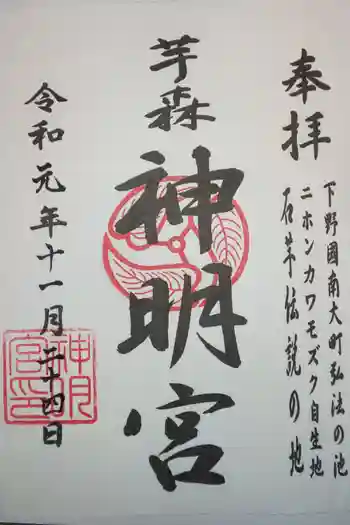 奉拝
下野國南大町弘法の池
ニホンカワモズク自生地
石芋伝説の地
芋森
神明宮
令和元年十一月二十四日
神明宮印